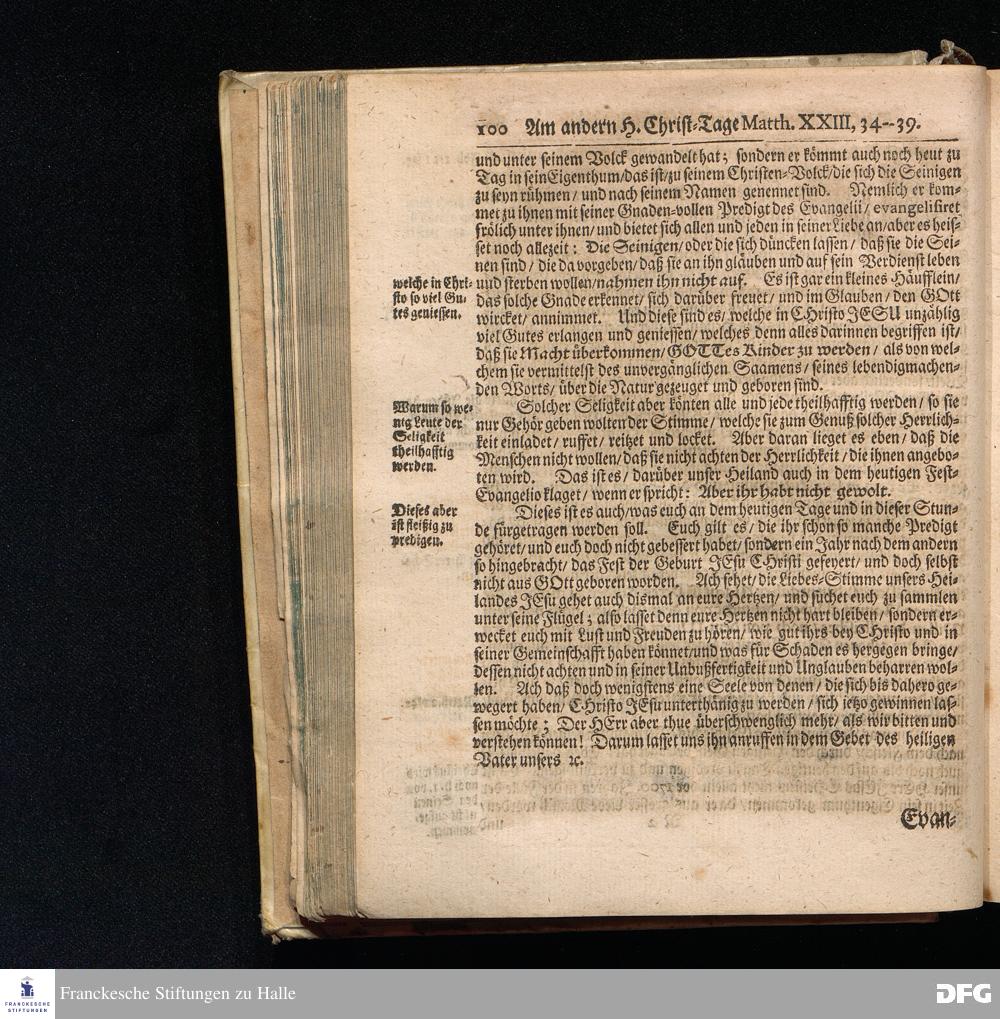 100 Am andern H. Christ-Tage Matth. XXIII, 34--39.
und unter seinem Volck gewandelt hat; sondern er kömmt auch noch heut zu
Tag in sein Eigenthum/das ist/zu seinem Christen-Volck/die sich die Seinigen
zu seyn rühmen/ und nach seinem Namen genennet sind. Nemlich er kom-
met zu ihnen mit seiner Gnaden-vollen Predigt des Evangelii/ evangelisiret
frölich unter ihnen/ und bietet sich allen und jeden in seiner Liebe an/aber es heis-
set noch allezeit: Die Seinigen/oder die sich düncken lassen/ daß sie die Sei-
nen sind/ die da vorgeben/daß sie an ihn gläuben und auf sein Verdienst leben
und sterben wollen/nahmen ihn nicht auf. Es ist gar ein kleines Häufflein/
das solche Gnade erkennet/ sich darüber freuet/ und im Glauben/ den GOtt
wircket/ annimmet. Und diese sind es/ welche in CHristo JESU unzählig
viel Gutes erlangen und geniessen/ welches denn alles darinnen begriffen ist/
daß sie Macht überkommen/GOTTes Kinder zu werden/ als von wel-
chem sie vermittelst des unvergänglichen Saamens/ seines lebendigmachen-
den Worts/ über die Natur gezeuget und geboren sind.
welche in Chri-
sto so viel Gu-
tes geniessen.
Solcher Seligkeit aber könten alle und jede theilhafftig werden/ so sie
nur Gehör geben wolten der Stimme/ welche sie zum Genuß solcher Herrlich-
keit einladet/ ruffet/ reitzet und locket. Aber daran lieget es eben/ daß die
Menschen nicht wollen/daß sie nicht achten der Herrlichkeit/die ihnen angebo-
ten wird. Das ist es/ darüber unser Heiland auch in dem heutigen Fest-
Evangelio klaget/ wenn er spricht: Aber ihr habt nicht gewolt.
Warum so we-
nig Leute der
Seligkeit
theilhafftig
werden.
Dieses ist es auch/was euch an dem heutigen Tage und in dieser Stun-
de fürgetragen werden soll. Euch gilt es/ die ihr schon so manche Predigt
gehöret/und euch doch nicht gebessert habet/ sondern ein Jahr nach dem andern
so hingebracht/ das Fest der Geburt JEsu CHristi gefeyert/ und doch selbst
nicht aus GOtt geboren worden. Ach sehet/ die Liebes-Stimme unsers Hei-
landes JEsu gehet auch dismal an eure Hertzen/ und suchet euch zu sammlen
unter seine Flügel; also lasset denn eure Hertzen nicht hart bleiben/ sondern er-
wecket euch mit Lust und Freuden zu hören/ wie gut ihrs bey CHristo und in
seiner Gemeinschafft haben könnet/und was für Schaden es hergegen bringe/
dessen nicht achten und in seiner Unbußfertigkeit und Unglauben beharren wol-
len. Ach daß doch wenigstens eine Seele von denen/ die sich bis dahero ge-
wegert haben/ CHristo JEsu unterthänig zu werden/ sich jetzo gewinnen las-
sen möchte; Der HErr aber thue überschwenglich mehr/ als wir bitten und
verstehen können! Darum lasset uns ihn anruffen in dem Gebet des heiligen
Vater unsers ꝛc.
Dieses aber
ist fleißig zu
predigen.
Evan-
FRANCKESCHE
STIFTUNGEN
Franckesche Stiftungen zu Halle
DFG